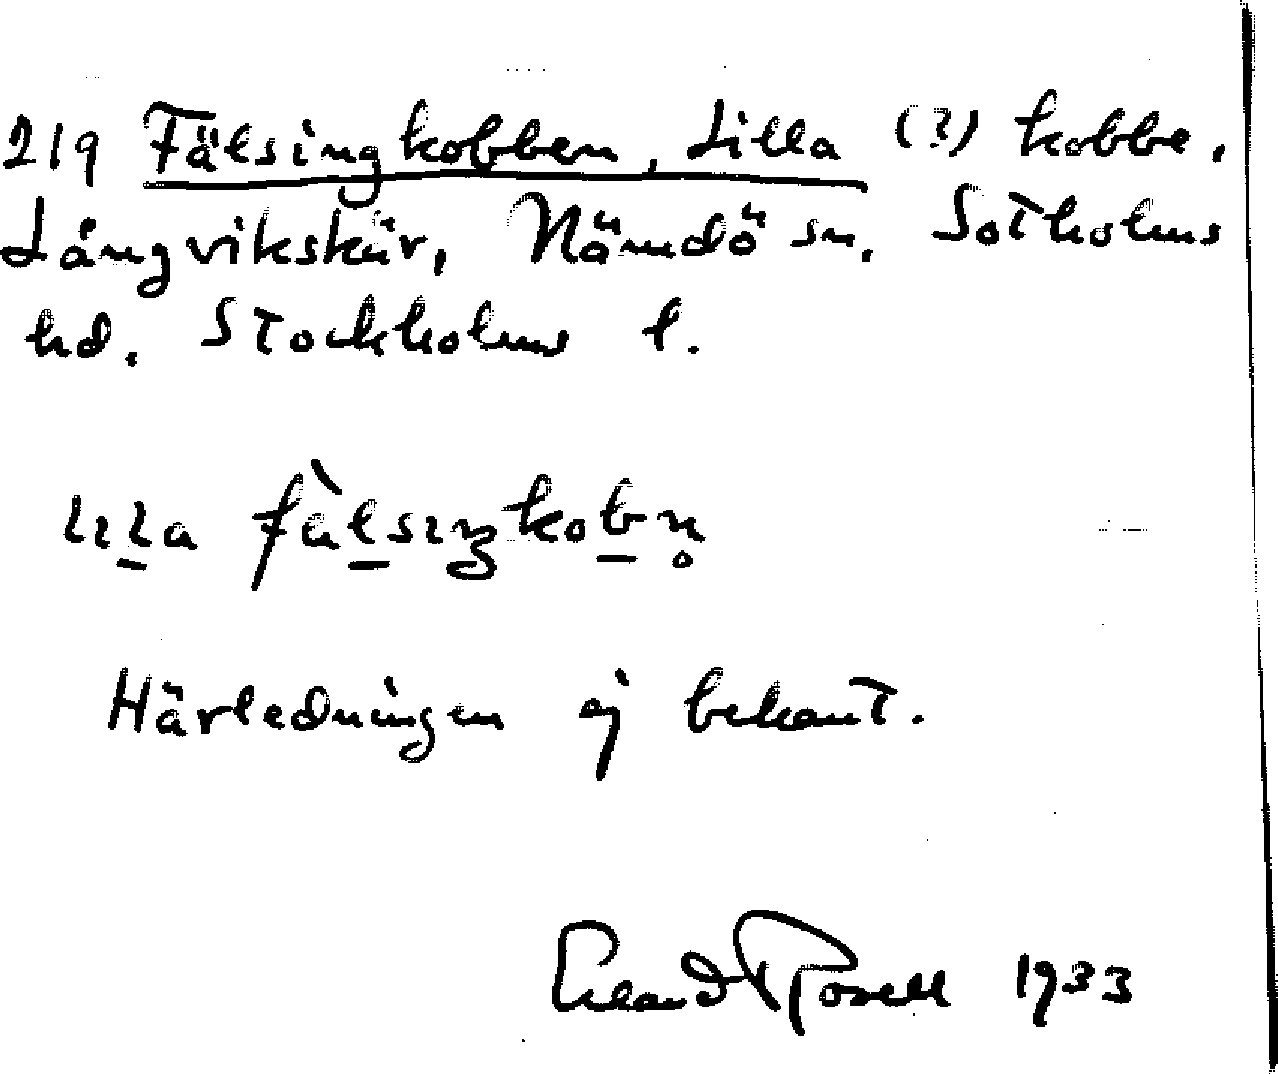 219 Fälsingkobben, Lilla (?) kobbe,
Långvikskär, Nämdö sn. Sotholms
hd. Stockholms l.
lıla fàlsıŋkobn̥
Härledningen ej bekant.
Erland Rosell 1933